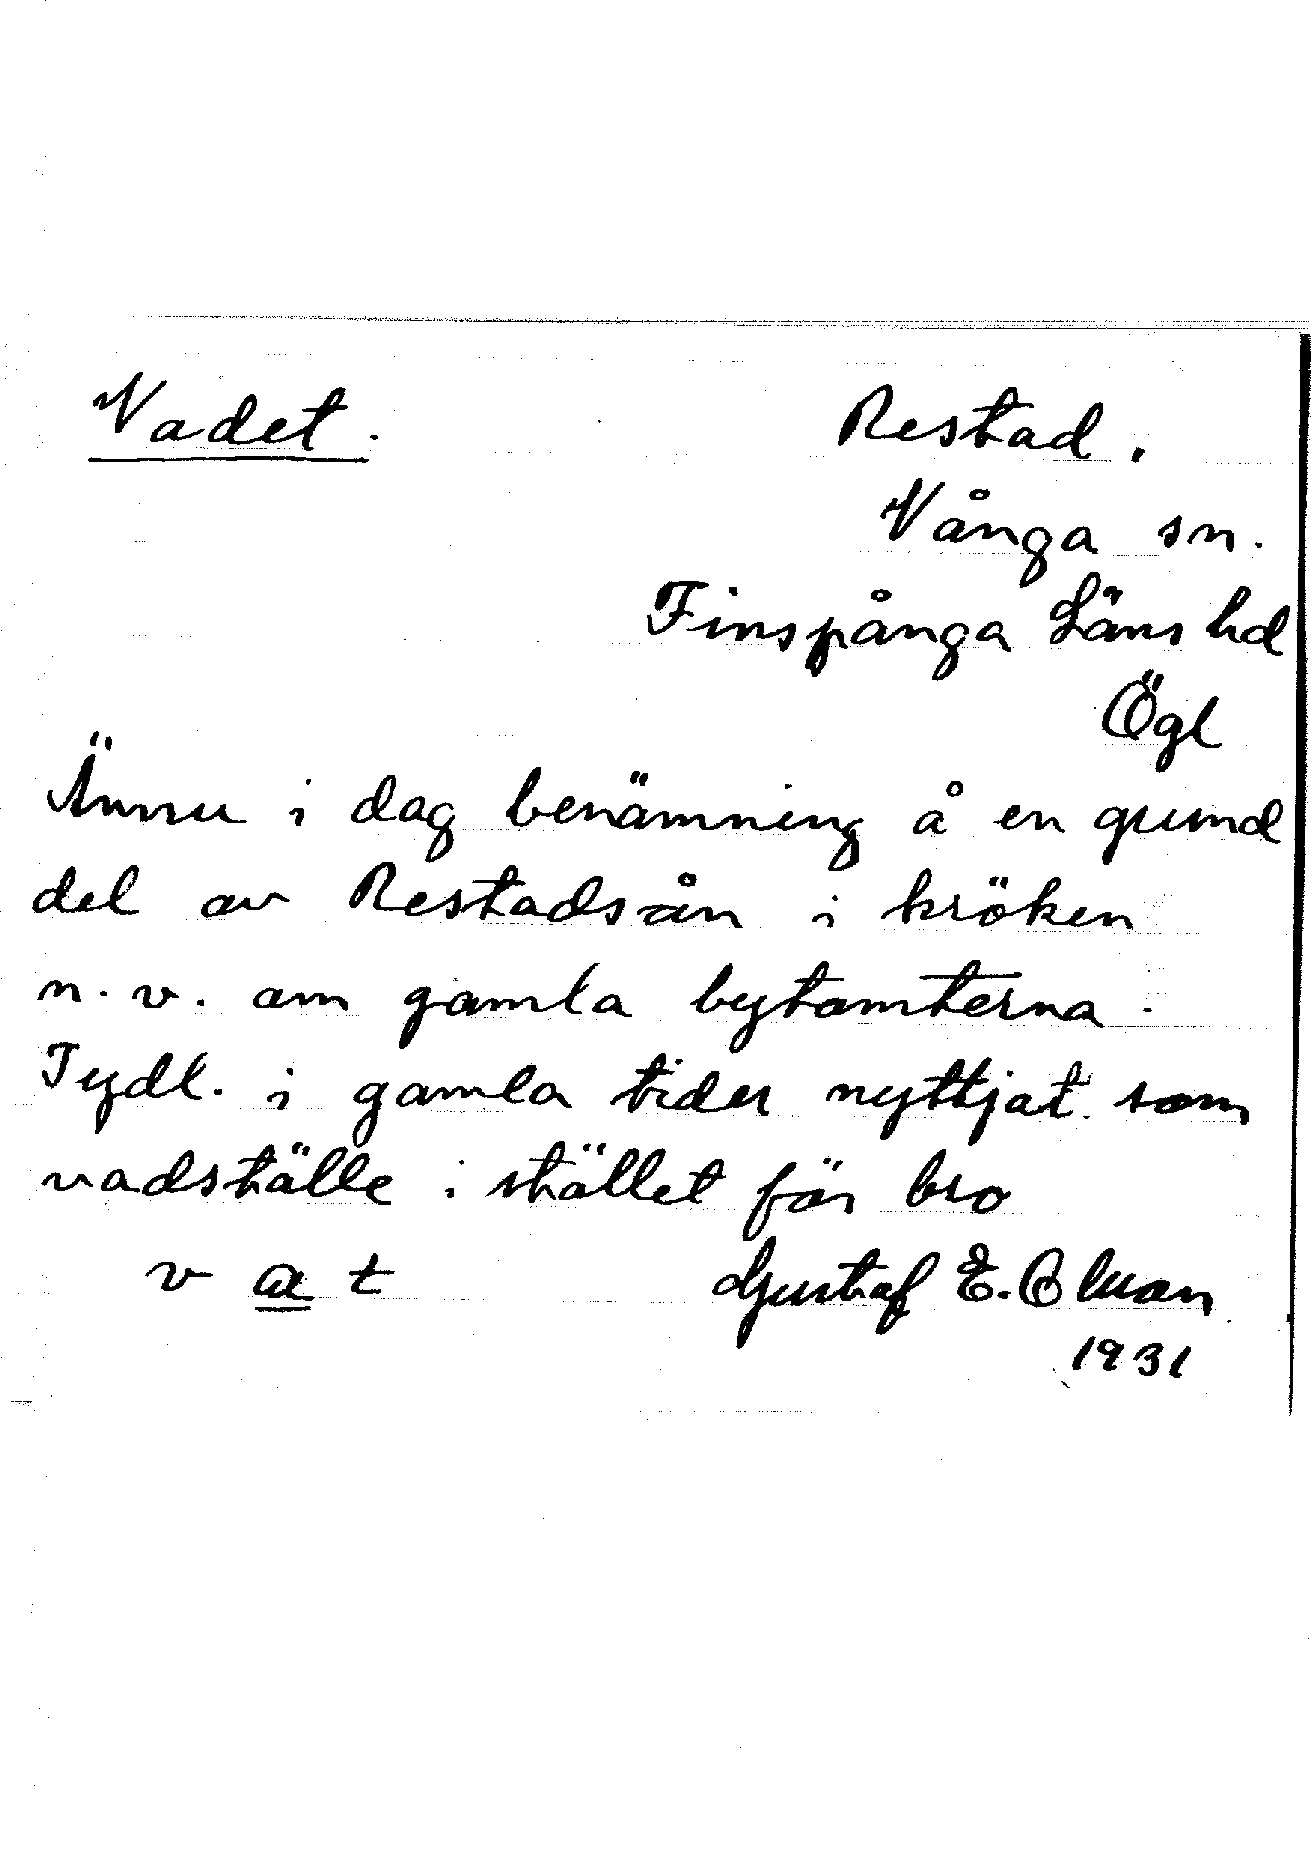 Vadet. Restad.
Vånga sn.
Finspånga Läns hd
Ögl
Ännu i dag benämning å en grund
del av Restadsån i kröken
n.v. om gamla bytomterna.
Tydl. i gamla tider nyttjat som
vadställe i stället för bro
v a t Gustaf E.
1931